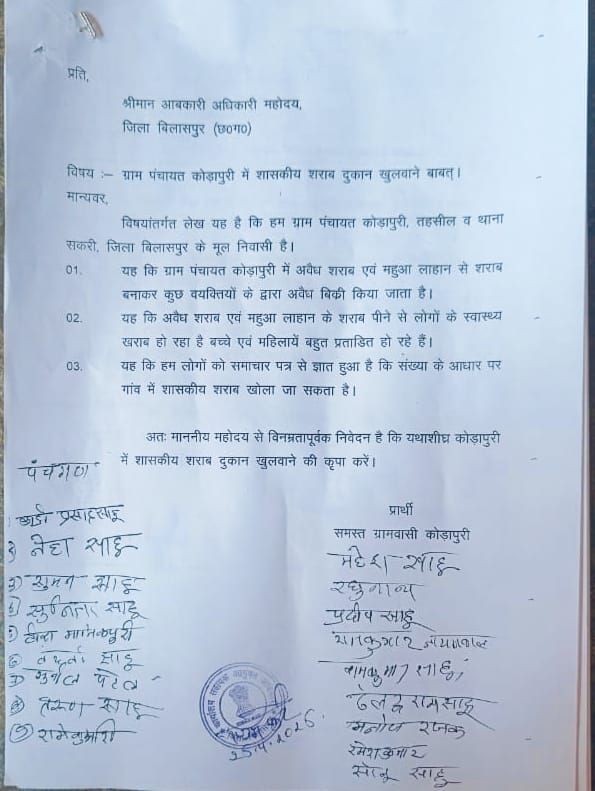 प्रति,
श्रीमान आबकारी अधिकारी महोदय,
जिला बिलासपुर (छ०ग०)
विषय :– ग्राम पंचायत कोड़ापुरी में शासकीय शराब दुकान खुलवाने बाबत्।
मान्यवर,
विषयांतर्गत लेख यह है कि हम ग्राम पंचायत कोड़ापुरी, तहसील व थाना
सकरी, जिला बिलासपुर के मूल निवासी है।
01. यह कि ग्राम पंचायत कोड़ापुरी में अवैध शराब एवं महुआ लाहान से शराब
बनाकर कुछ वयक्तियों के द्वारा अवैध बिक्री किया जाता है।
02. यह कि अवैध शराब एवं महुआ लाहान के शराब पीने से लोगों के स्वास्थ्य
खराब हो रहा है बच्चे एवं महिलायें बहुत प्रताडित हो रहे हैं।
03. यह कि हम लोगों को समाचार पत्र से ज्ञात हुआ है कि संख्या के आधार पर
गांव में शासकीय शराब खोला जा सकता है।
अतः माननीय महोदय से विनम्रतापूर्वक निवेदन है कि यथाशीघ्र कोड़ापुरी
में शासकीय शराब दुकान खुलवाने की कृपा करें।
पंचगण
प्रसाद साहू
2) नेहा साहू
3) सुमन साहू
4) सुनिता साहू
5) मानिकपुरी
6) साहू
7) पटेल
8) साहू
9) रामकुमारी
प्रार्थी
समस्त ग्रामवासी कोड़ापुरी
महेश साहू
रघुनाथ
प्रदीप साहू
रामकुमार साहू
साहू
मनोज रजक
रमेश कुमार
सोनू साहू